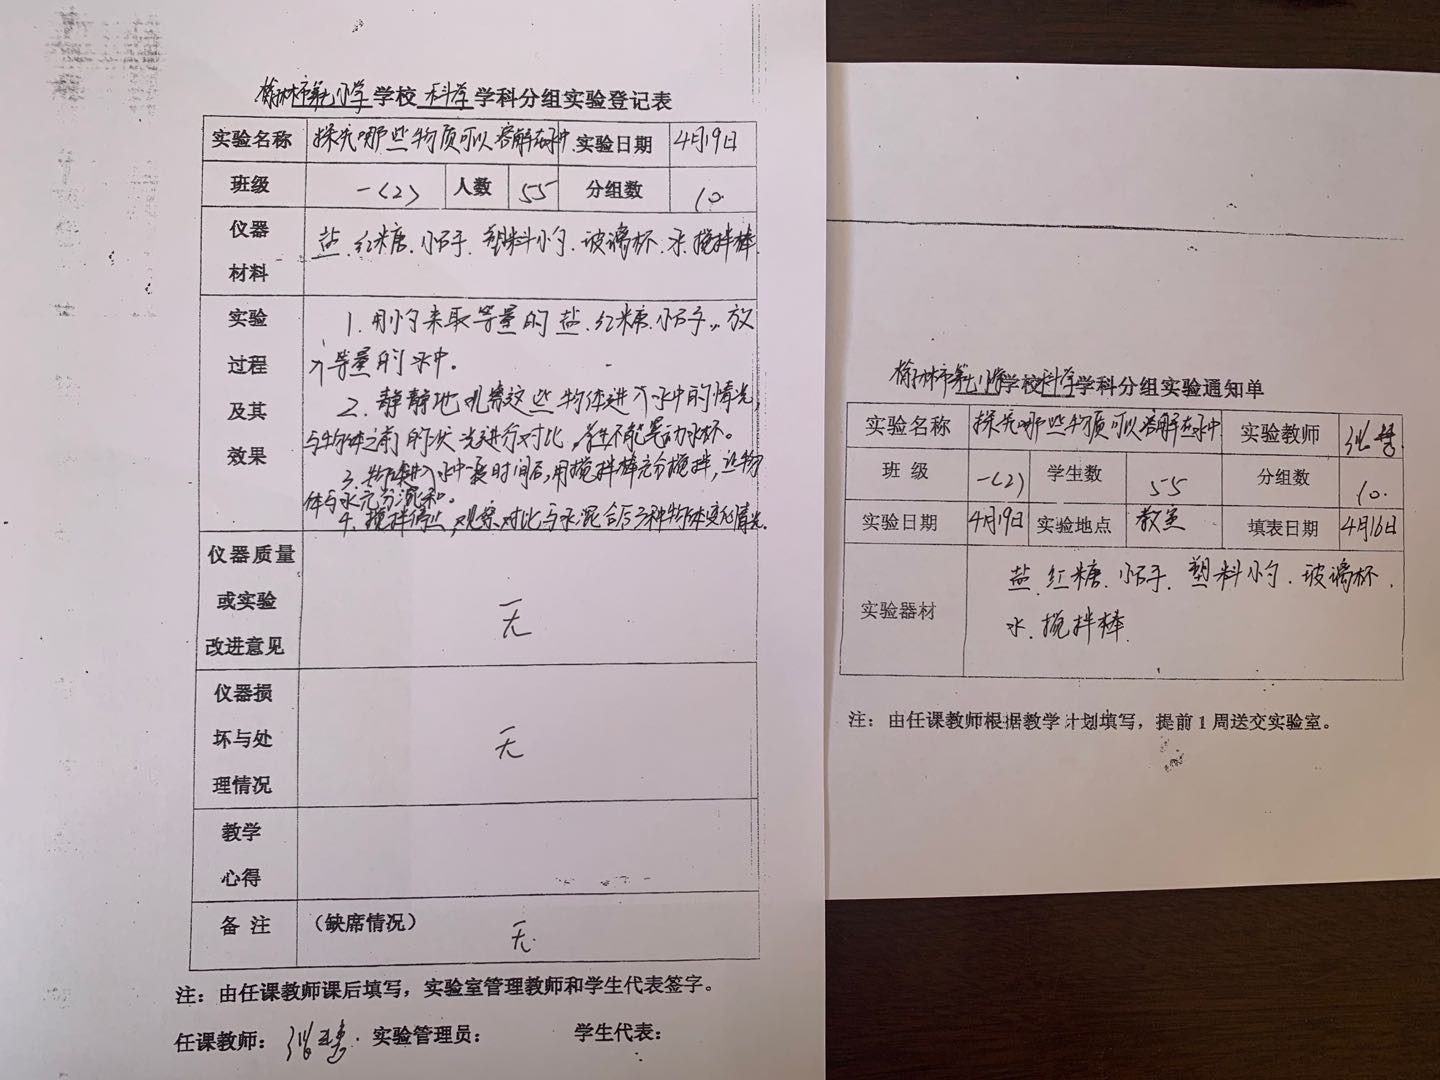 榆林市第七小学学校 科学 学科分组实验登记表
实验名称 探究哪些物质可以溶解在水中 实验日期 4月19日
班级 一(2) 人数 55 分组数 10
仪器材料 盐、红糖、小石子、塑料小勺、玻璃杯、水、搅拌棒
实验过程及其效果
1. 用小勺来取等量的盐、红糖、小石子,放
入等量的水中。
2. 静静地观察这些物体进入水中的情况,
与物体之前的状况进行对比,学生不能晃动水杯。
3. 物体进入水中一段时间后,用搅拌棒充分搅拌,让物
体与水充分混和。
4. 搅拌停止,观察、对比与水混合后三种物体变化情况.
仪器质量或实验改进意见 无
仪器损坏与处理情况 无
教学心得
备注 (缺席情况) 无
注:由任课教师课后填写,实验室管理教师和学生代表签字。
任课教师: 实验管理员: 学生代表:
榆林市第七小学学校科学学科分组实验通知单
实验名称 探究哪些物质可以溶解在水中 实验教师
班级 一(2) 学生数 55 分组数 10
实验日期 4月19日 实验地点 教室 填表日期 4月16日
实验器材 盐、红糖、小石子、塑料小勺、玻璃杯、
水、搅拌棒
注:由任课教师根据教学计划填写,提前1周送交实验室。